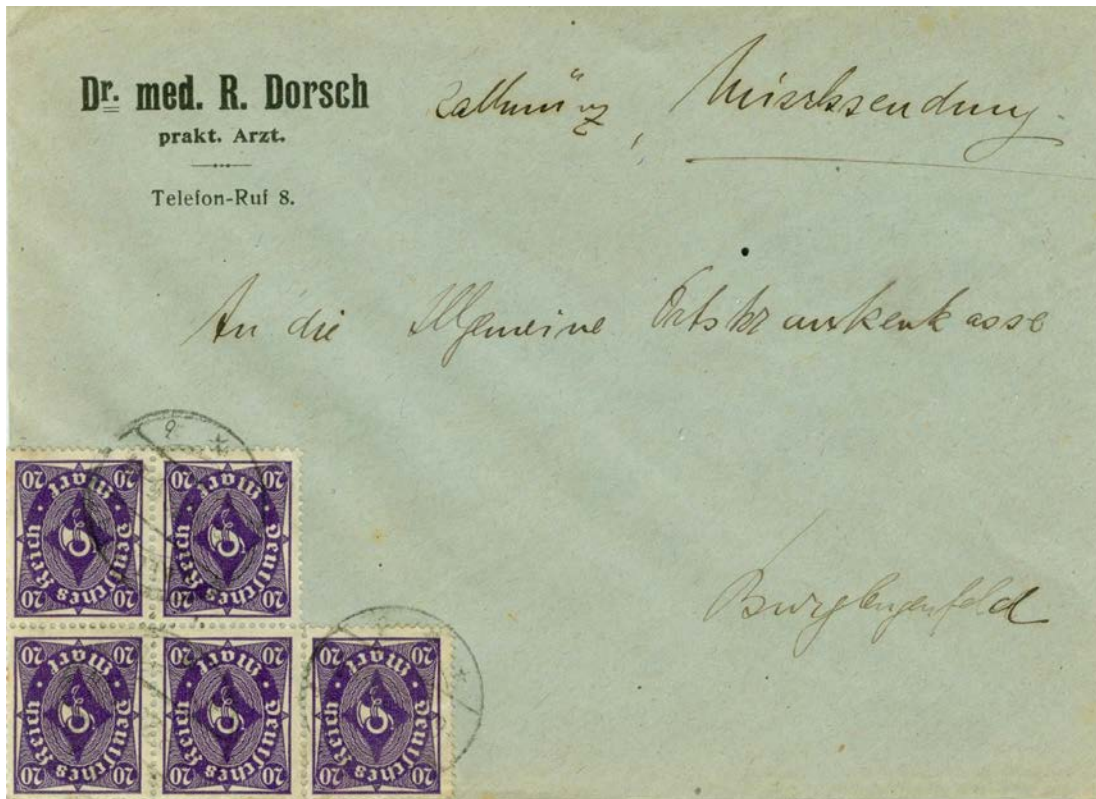 Dr. med. R. Dorsch
prakt. Arzt.
Telefon-Ruf 8.
Kallmünz, Mischsendung.
An die Allgemeine Ortskrankenkasse
Burglengenfeld
20 20 Deutsches Reich Mark 20 20
20 20 Deutsches Reich Mark 20 20
20 20 Deutsches Reich Mark 20 20
20 20 Deutsches Reich Mark 20 20
20 20 Deutsches Reich Mark 20 20